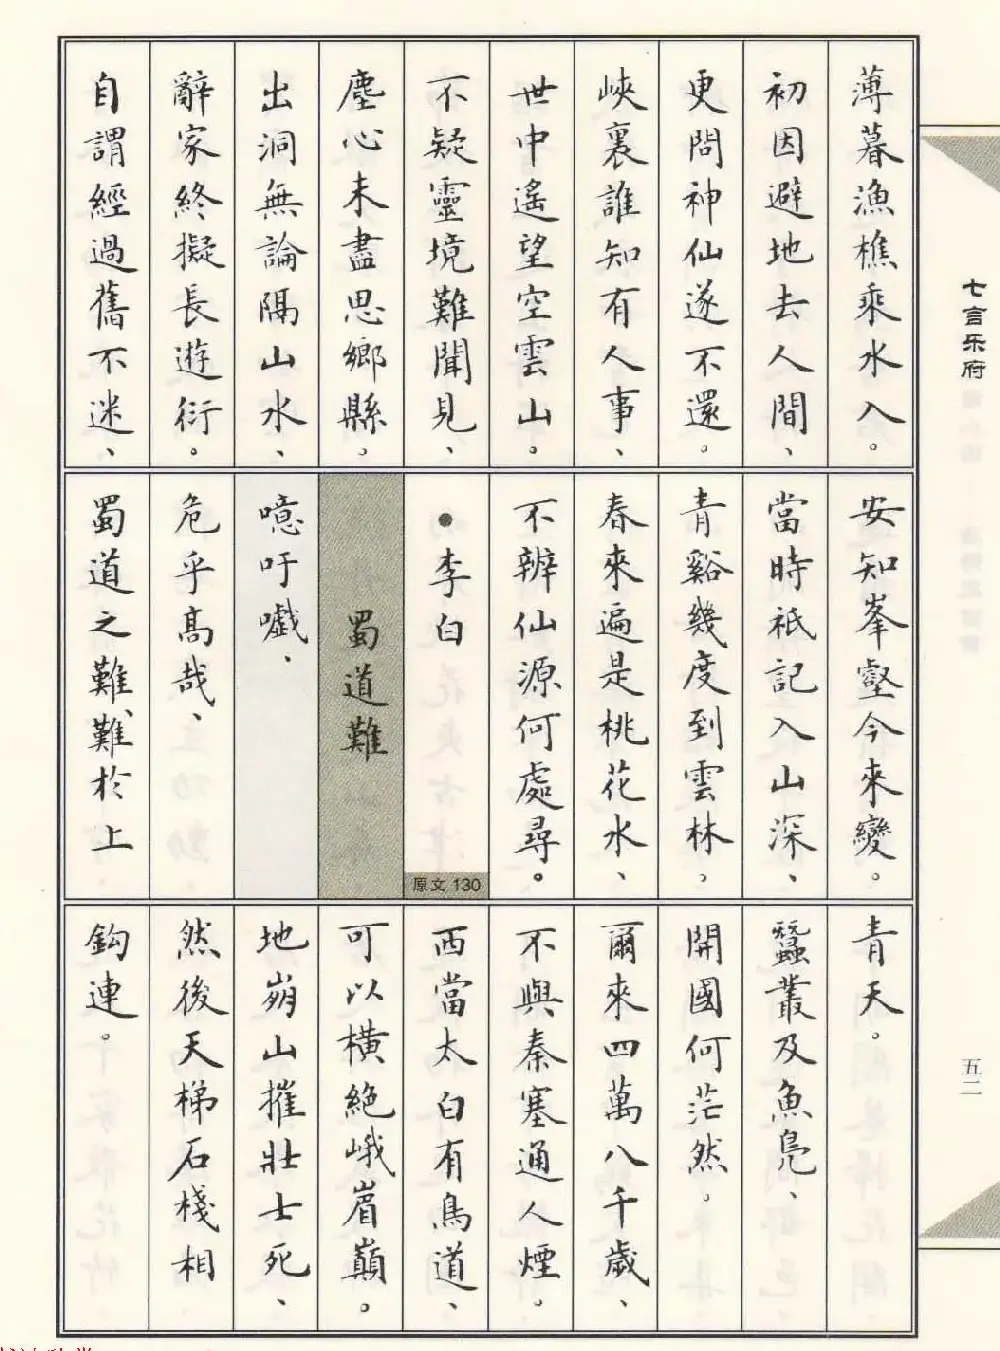 七言乐府
薄暮漁樵乘水入。
初因避地去人間、
更問神仙遂不還。
峽裏誰知有人事、
世中遙望空雲山。
不疑靈境難聞見、
塵心未盡思鄉縣。
出洞無論隔山水、
辭家終擬長遊衍。
自謂經過舊不迷、
安知峯壑今來變。
當時祇記入山深、
青谿幾度到雲林。
春來遍是桃花水、
不辨仙源何處尋。
●李白
原文 130
蜀道難
噫吁嚱、
危乎高哉、
蜀道之難、難於上
青天。
蠶叢及魚鳧、
開國何茫然。
爾來四萬八千歲、
不與秦塞通人煙。
西當太白有鳥道、
可以橫絕峨眉巔。
地崩山摧壯士死、
然後天梯石棧相
鈎連。
五二